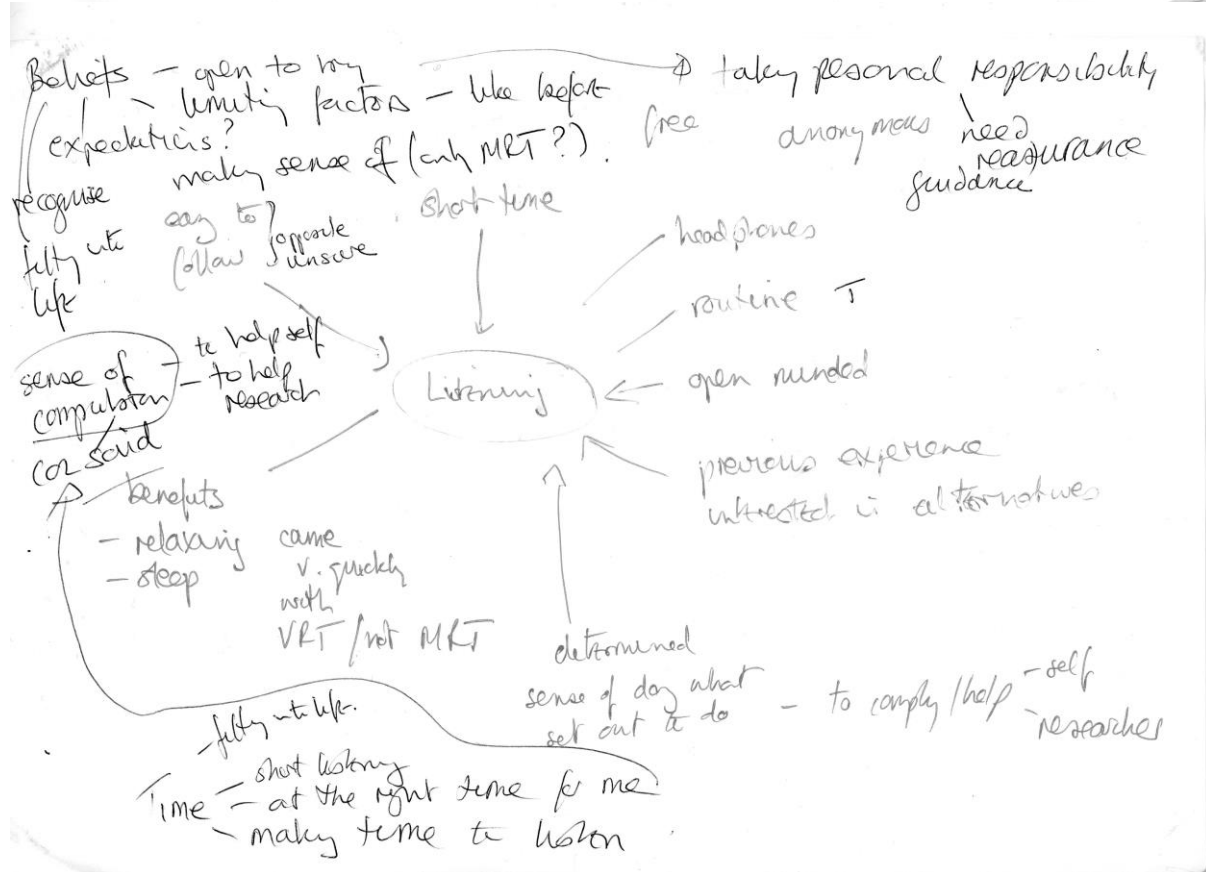 Beliefs – open to try
→ taking personal responsibility
– limiting factors – like before
expectations?
free
anonymous
need
reassurance
guidance
making sense of (only MRT?).
recognise
easy to
follow
opposite
unsure
short time
fitting into
life
headphones
routine
open minded
Listening
sense of
compulsion
– to help self
– to help
research
coz said
previous experience
interested in alternatives
benefits
– relaxing
– sleep
came
v. quickly
with
VRT / not MRT
determined
sense of doing what
set out to do – to comply / help
– self
– researcher
– fitting into life.
Time – short listening
– at the right time for me
– making time to listen